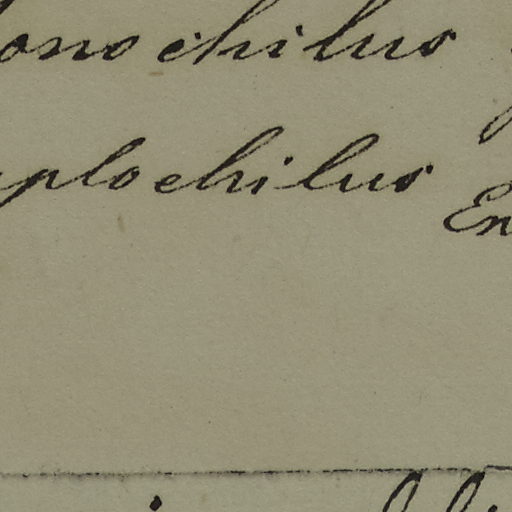 onochilus
plochilus
En